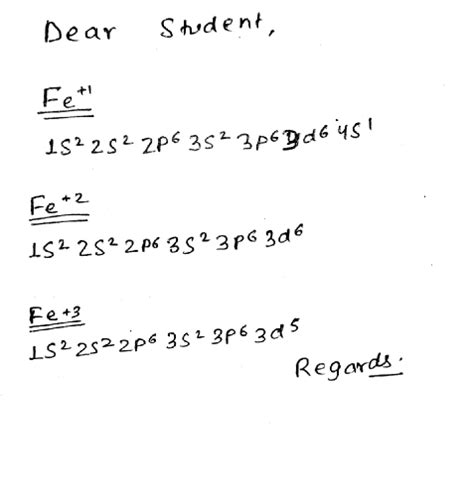 Dear Student,
Fe⁺¹
1S² 2S² 2P⁶ 3S² 3P⁶ 3d⁶ 4S¹
Fe⁺²
1S² 2S² 2P⁶ 3S² 3P⁶ 3d⁶
Fe⁺³
1S² 2S² 2P⁶ 3S² 3P⁶ 3d⁵
Regards.